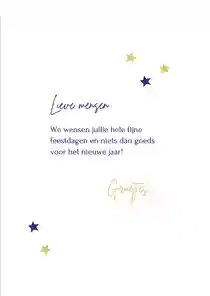 Lieve mensen
We wensen jullie hele fijne
feestdagen en niets dan goeds
voor het nieuwe jaar!
Groetjes